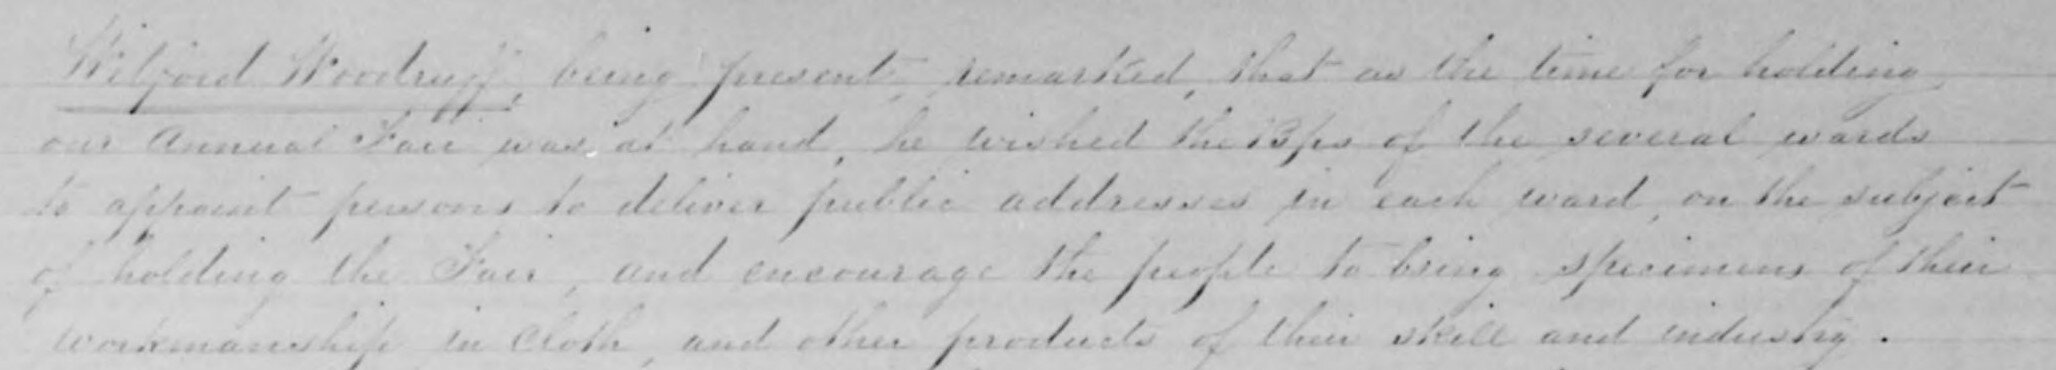 Wilford Woodruff, being present, remarked, that as the time for holding
our Annual Fair was, at hand, he wished the Bps of the several wards
to appoint persons to deliver public addresses in each ward, on the subject
of holding the Fair, and encourage the people to bring specimens of their
workmanship in cloth, and other products of their skill and industry.